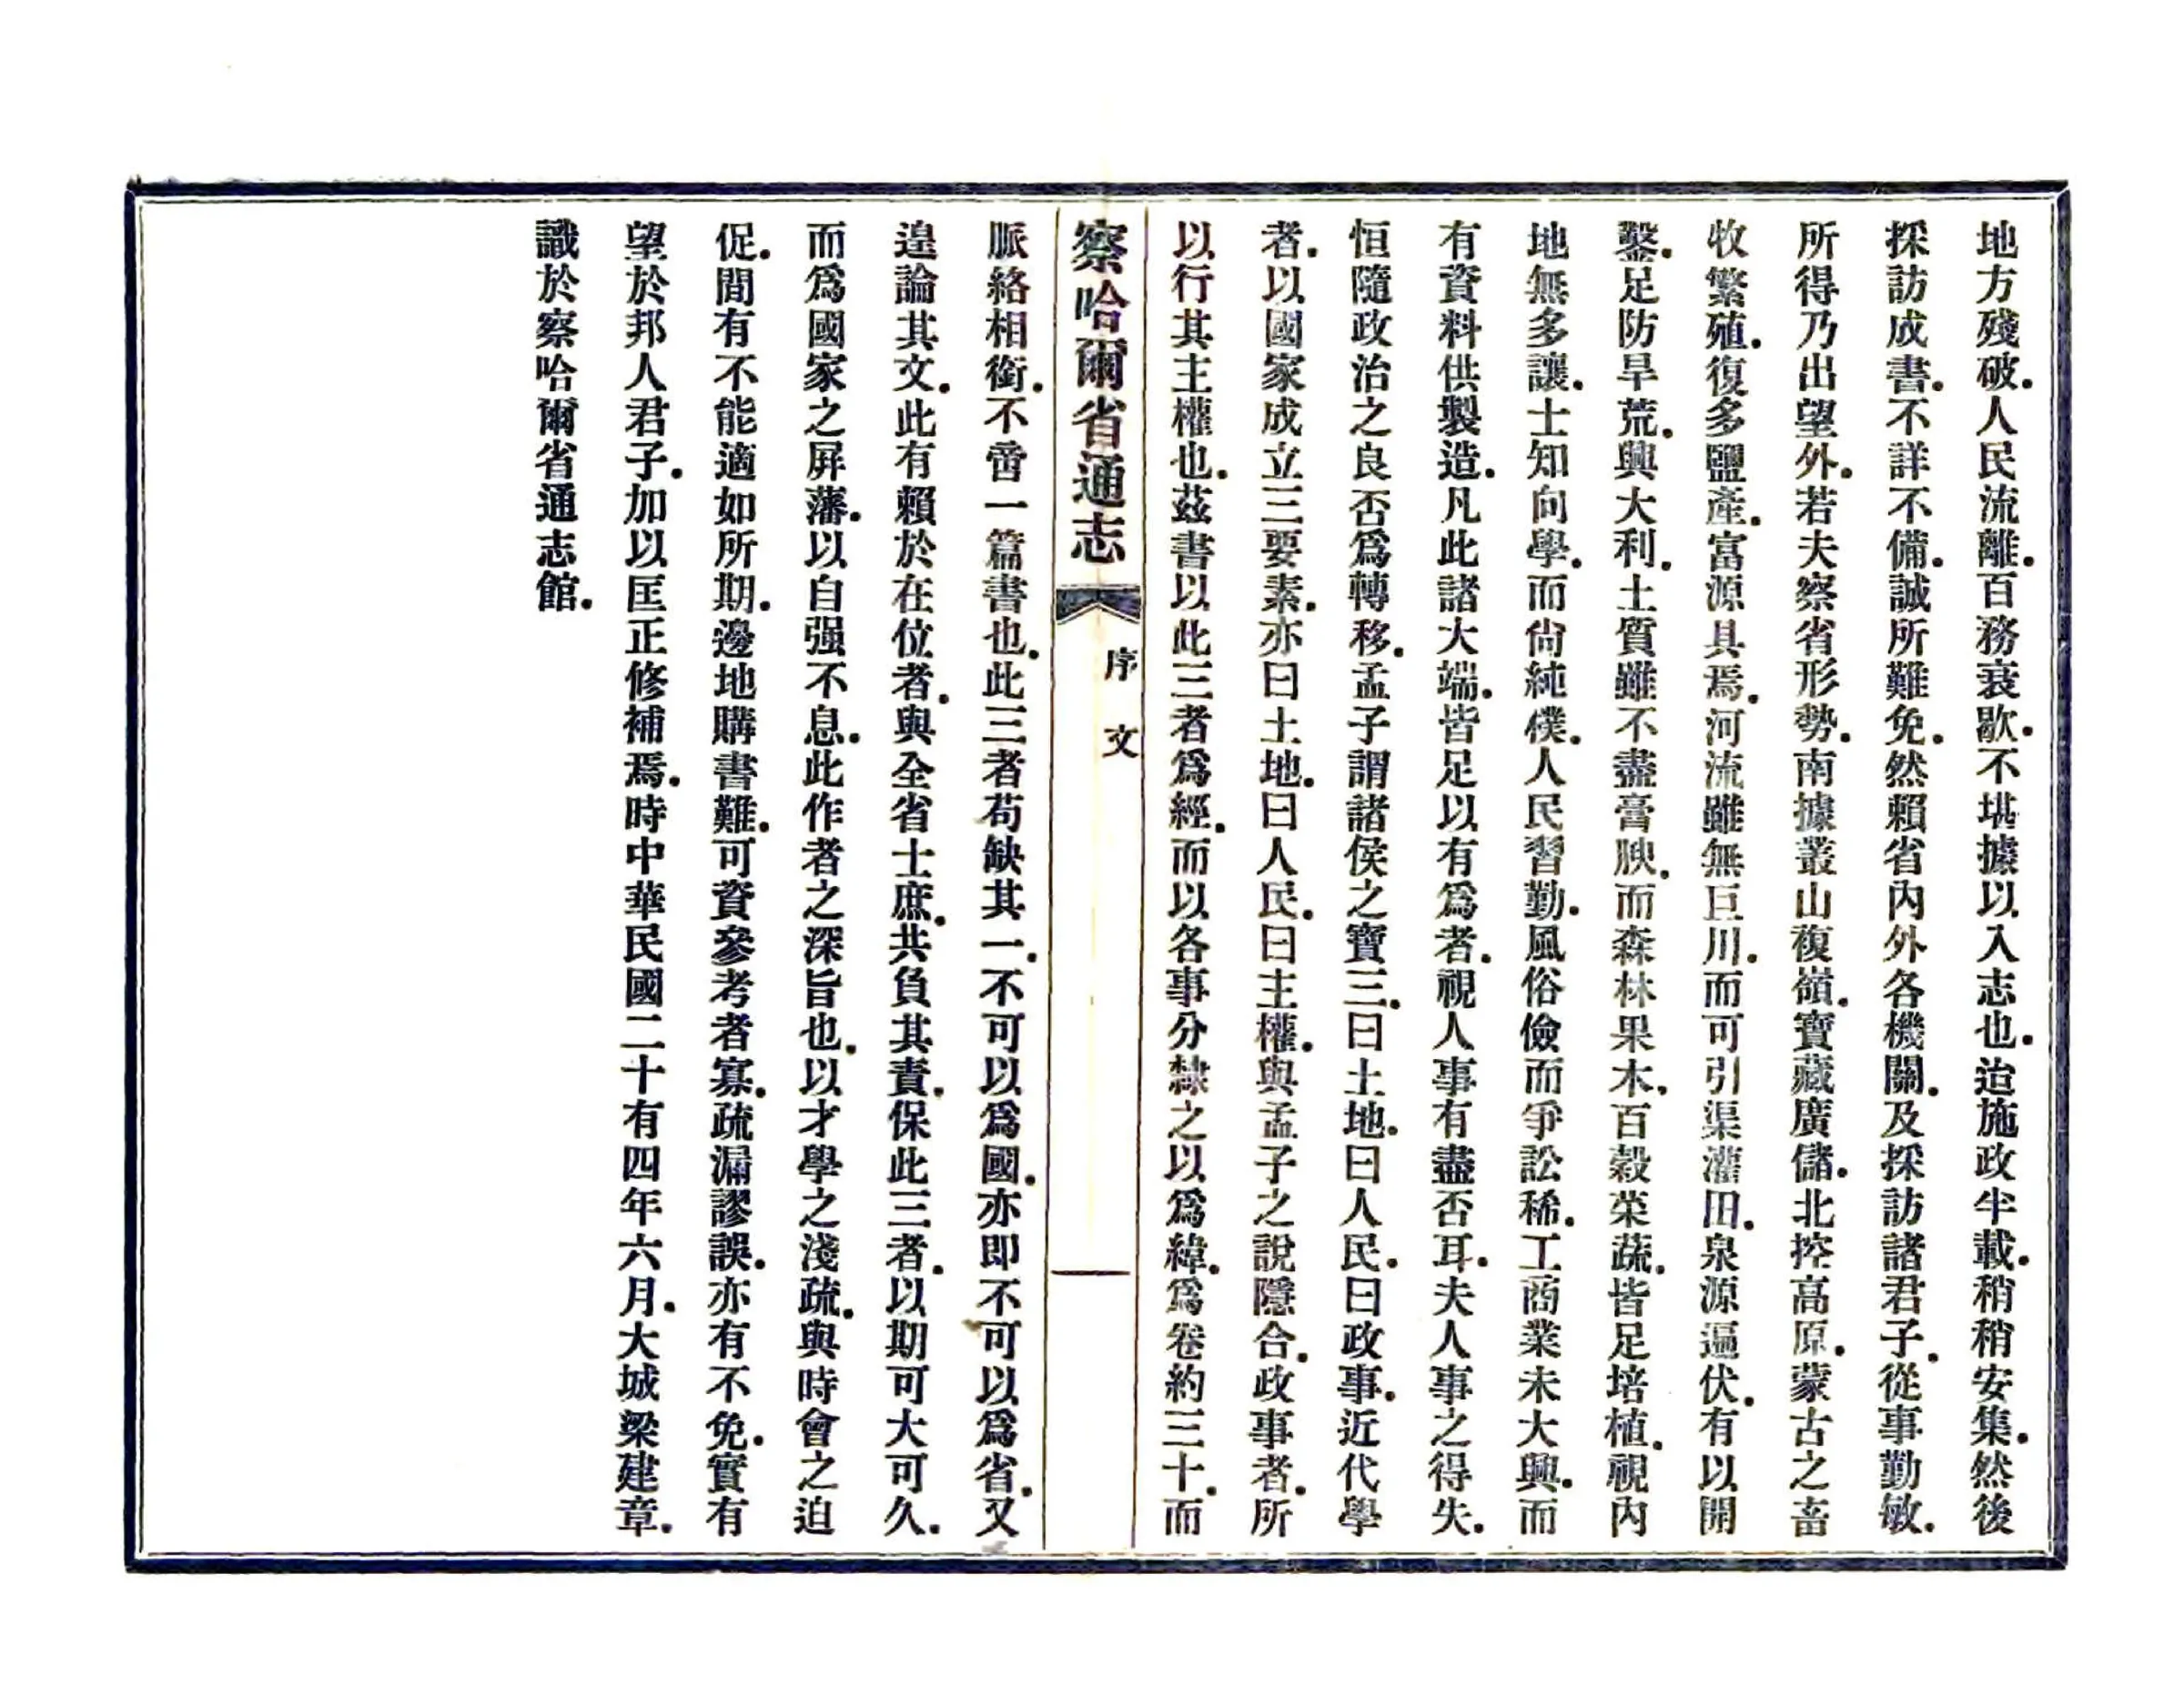 地方殘破．人民流離．百務衰歇．不堪據以入志也．迨施政半載．稍稍安集．然後
採訪成書．不詳不備．誠所難免．然賴省內外各機關．及採訪諸君子．從事勤敏．
所得乃出望外．若夫察省形勢．南據叢山複嶺．寶藏廣儲．北控高原．蒙古之畜
牧繁殖．復多鹽產．富源具焉．河流雖無巨川．而可引渠灌田．泉源遍伏．有以開
鑿．足防旱荒．興大利．土質雖不盡膏腴．而森林果木．百穀菜蔬．皆足培植．視內
地無多讓．士知向學．而尙純樸．人民習勤．風俗儉而爭訟稀．工商業未大興．而
有資料供製造．凡此諸大端．皆足以有爲者．視人事有盡否耳．夫人事之得失．
恒隨政治之良否爲轉移．孟子謂諸侯之寶三．曰土地．曰人民．曰政事．近代學
者．以國家成立三要素．亦曰土地．曰人民．曰主權．與孟子之說隱合．政事者．所
以行其主權也．茲書以此三者爲經．而以各事分隸之以爲緯．爲卷約三十．而
察哈爾省通志
序文
脈絡相銜．不啻一篇書也．此三者苟缺其一．不可以爲國．亦即不可以爲省．又
遑論其文．此有賴於在位者．與全省士庶．共負其責．保此三者．以期可大可久．
而爲國家之屛藩．以自强不息．此作者之深旨也．以才學之淺疏．與時會之迫
促．間有不能適如所期．邊地購書難．可資參考者寡．疏漏謬誤．亦有不免．實有
望於邦人君子．加以匡正修補焉．時中華民國二十有四年六月．大城梁建章．
識於察哈爾省通志館．